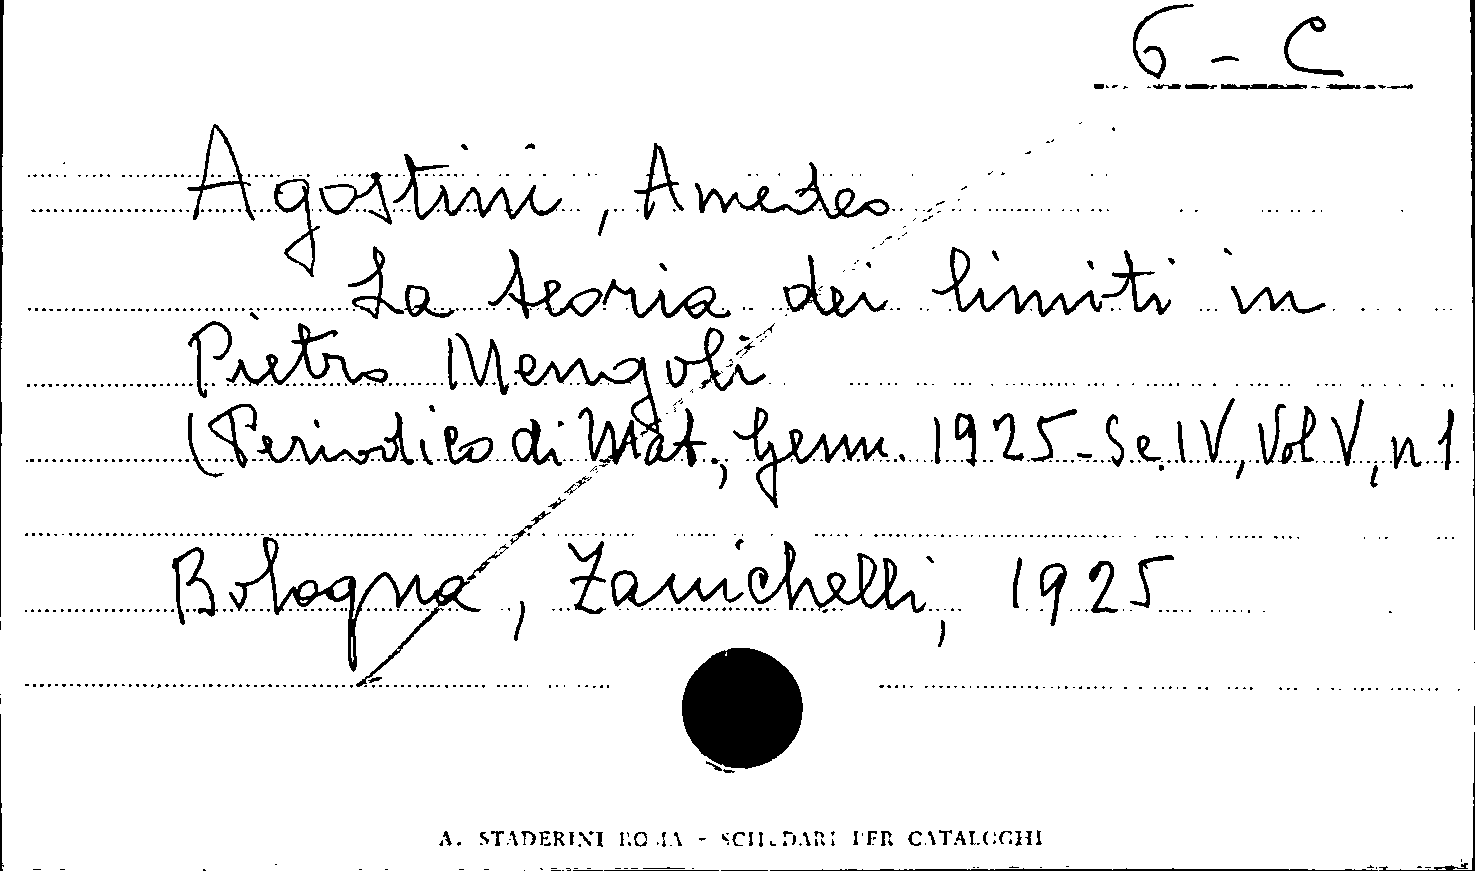 6 - C
Agostini, Amedeo
La teoria dei limiti in
Pietro Mengoli
(Periodico di Mat., Genn. 1925 - Se. IV, Vol V, n 1
Bologna, Zanichelli, 1925
A. STADERINI ROMA - SCHEDARI PER CATALOGHI